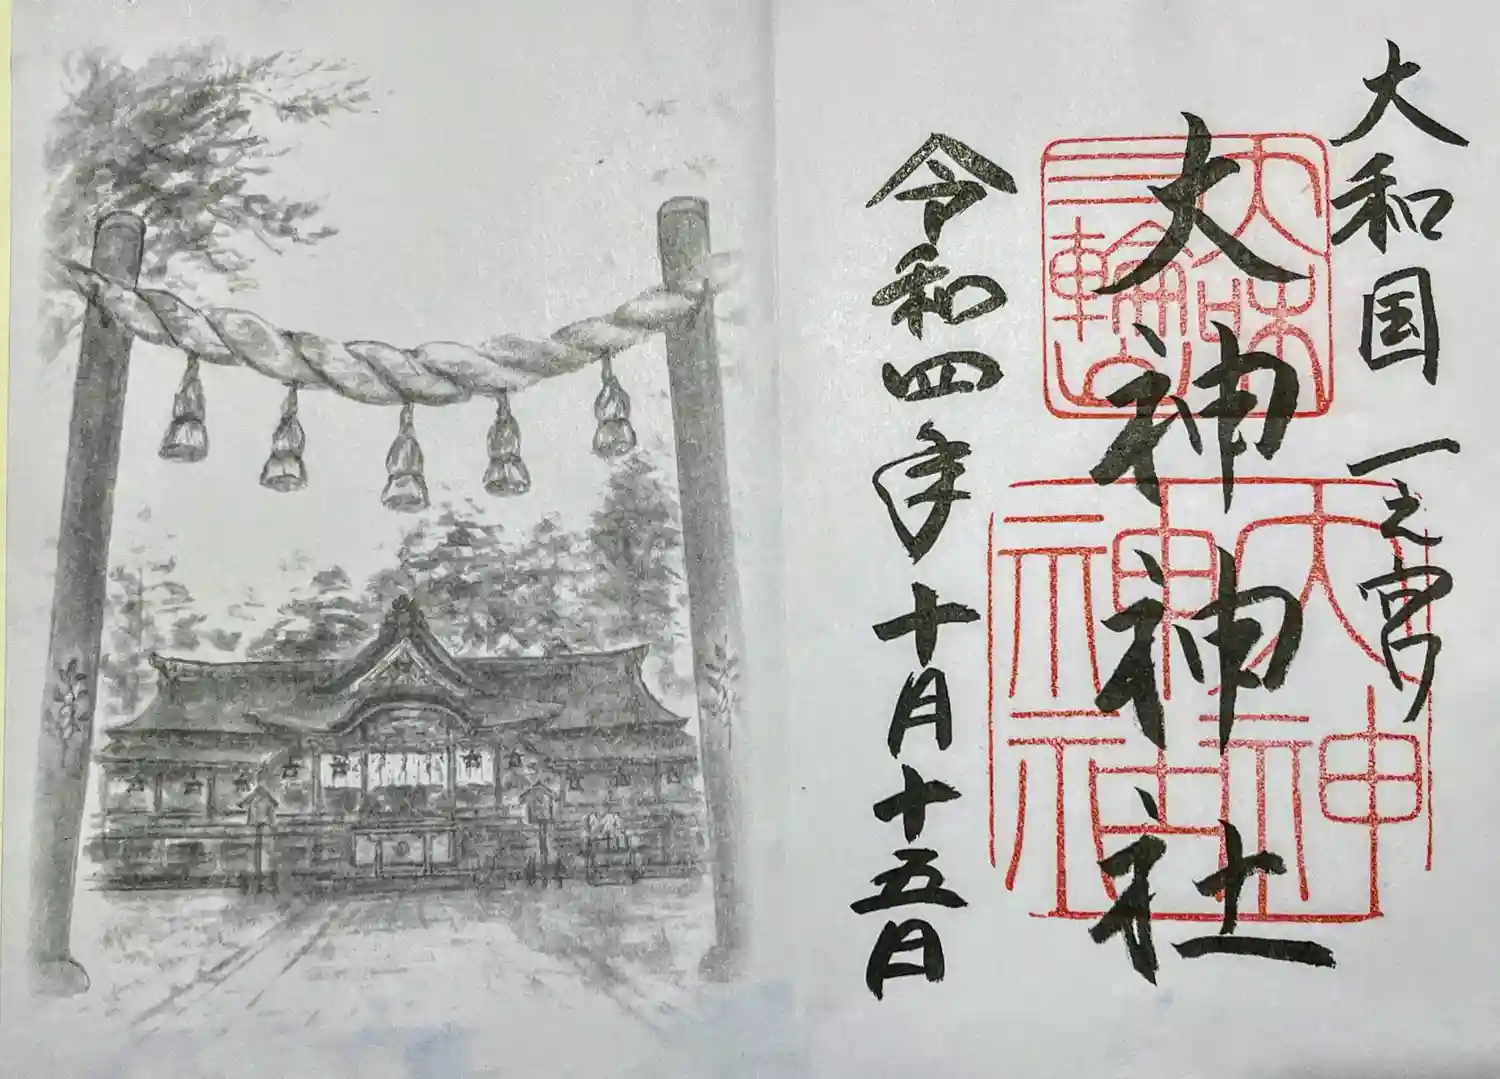 大和国 一之宮
大神神社
令和四年十月十五日
大咊
三輪山
大神
神社